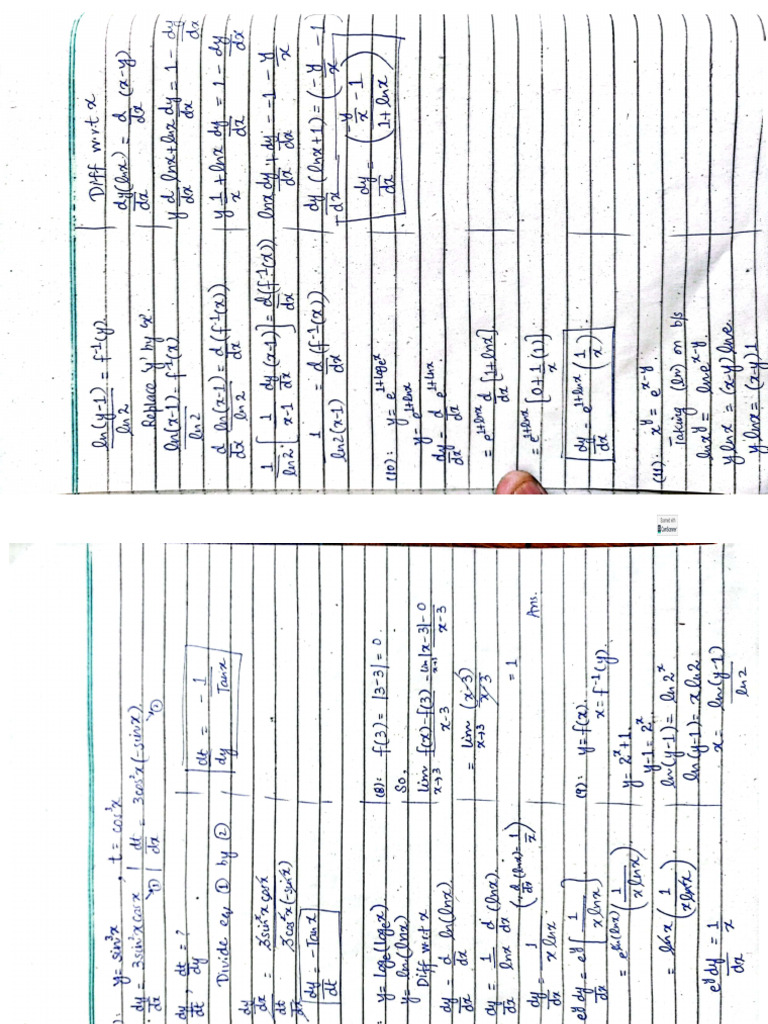 ): y = sin³x , t = cos³x
dy/dx = 3sin²x cosx | dt/dx = 3cos²x(-sinx)
①
②
dy/dt , dt/dy = ?
Divide eq ① by ②
dy/dx / dt/dx = 3sin²x cosx / 3cos²x(-sinx)
dy/dt = -Tanx
dt/dy = -1/Tanx
= y = logₑ(logₑx)
y = ln(lnx)
Diff w.r.t x
dy/dx = d/dx ln(lnx)
dy/dx = 1/lnx d/dx (lnx)
dy/dx = 1/xlnx (d/dx (lnx) = 1/x)
e^y dy/dx = e^y [1/xlnx]
= e^ln(lnx) (1/xlnx)
= lnx (1/xlnx)
e^y dy/dx = 1/x
(8): f(3) = |3-3| = 0
So,
lim x→3 f(x)-f(3)/x-3 = lim x→3 |x-3|-0/x-3
= lim x→3 (x-3)/x-3
= 1 Ans.
(9): y = f(x)
x = f⁻¹(y).
y = 2^x + 1.
y-1 = 2^x
ln(y-1) = ln 2^x
ln(y-1) = x ln2
x = ln(y-1)/ln2
ln(y-1)/ln2 = f⁻¹(y).
Replace 'y' by 'x'
ln(x-1)/ln2 = f⁻¹(x)
d/dx ln(x-1)/ln2 = d/dx (f⁻¹(x))
1/ln2 [1/x-1 dy/dx (x-1)] = d/dx (f⁻¹(x))
1/ln2(x-1) = d/dx (f⁻¹(x)).
(10): y = e^1+logₑx
y = e^1+lnx
dy/dx = d/dx e^1+lnx
= e^1+lnx d/dx [1+lnx]
= e^1+lnx [0+1/x (1)]
dy/dx = e^1+lnx (1/x)
(11): x^y = e^x-y
Taking (ln) on b/s
lnx^y = lne^x-y
ylnx = (x-y) lne.
ylnx = (x-y)1
Diff w.r.t x
dy/dx (lnx) = d/dx (x-y)
y d/dx lnx + lnx dy/dx = 1 - dy/dx
y 1/x + lnx dy/dx = 1 - dy/dx
lnx dy/dx + dy/dx = -1 - y/x
dy/dx (lnx+1) = (-y/x - 1)
dy/dx = (-y/x - 1 / 1+lnx)
Scanned with
CamScanner